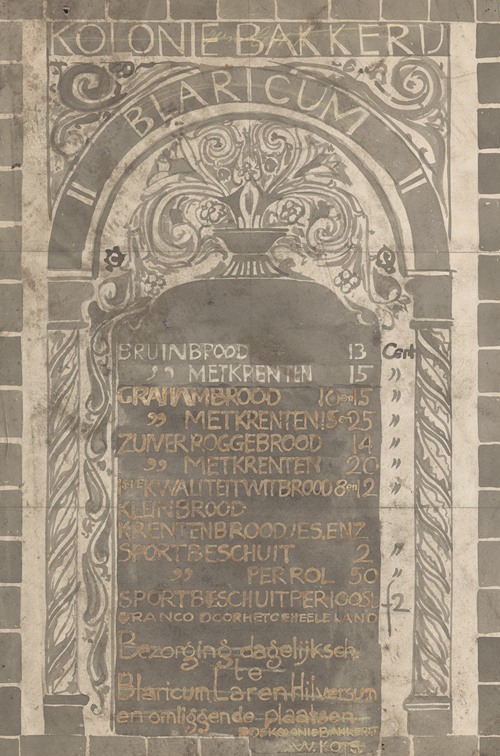 KOLONIE BAKKERIJ
BLARICUM
BRUINBROOD 13 Cent
" METKRENTEN 15 "
GRAHAMBROOD 10 en 15 "
" METKRENTEN 15 en 25 "
ZUIVER ROGGEBROOD 14 "
" METKRENTEN 20 "
KWALITEIT WITBROOD 8 en 12 "
KLEINBROOD
KRENTENBROODJES, ENZ.
SPORTBESCHUIT 2 "
" PER ROL 50 "
SPORTBESCHUIT PER 100 ST f2
FRANCO DOOR HET GEHEELE LAND
Bezorging dagelijksch
te
Blaricum Laren Hilversum
en omliggende plaatsen
KOLONIE BAKKERIJ